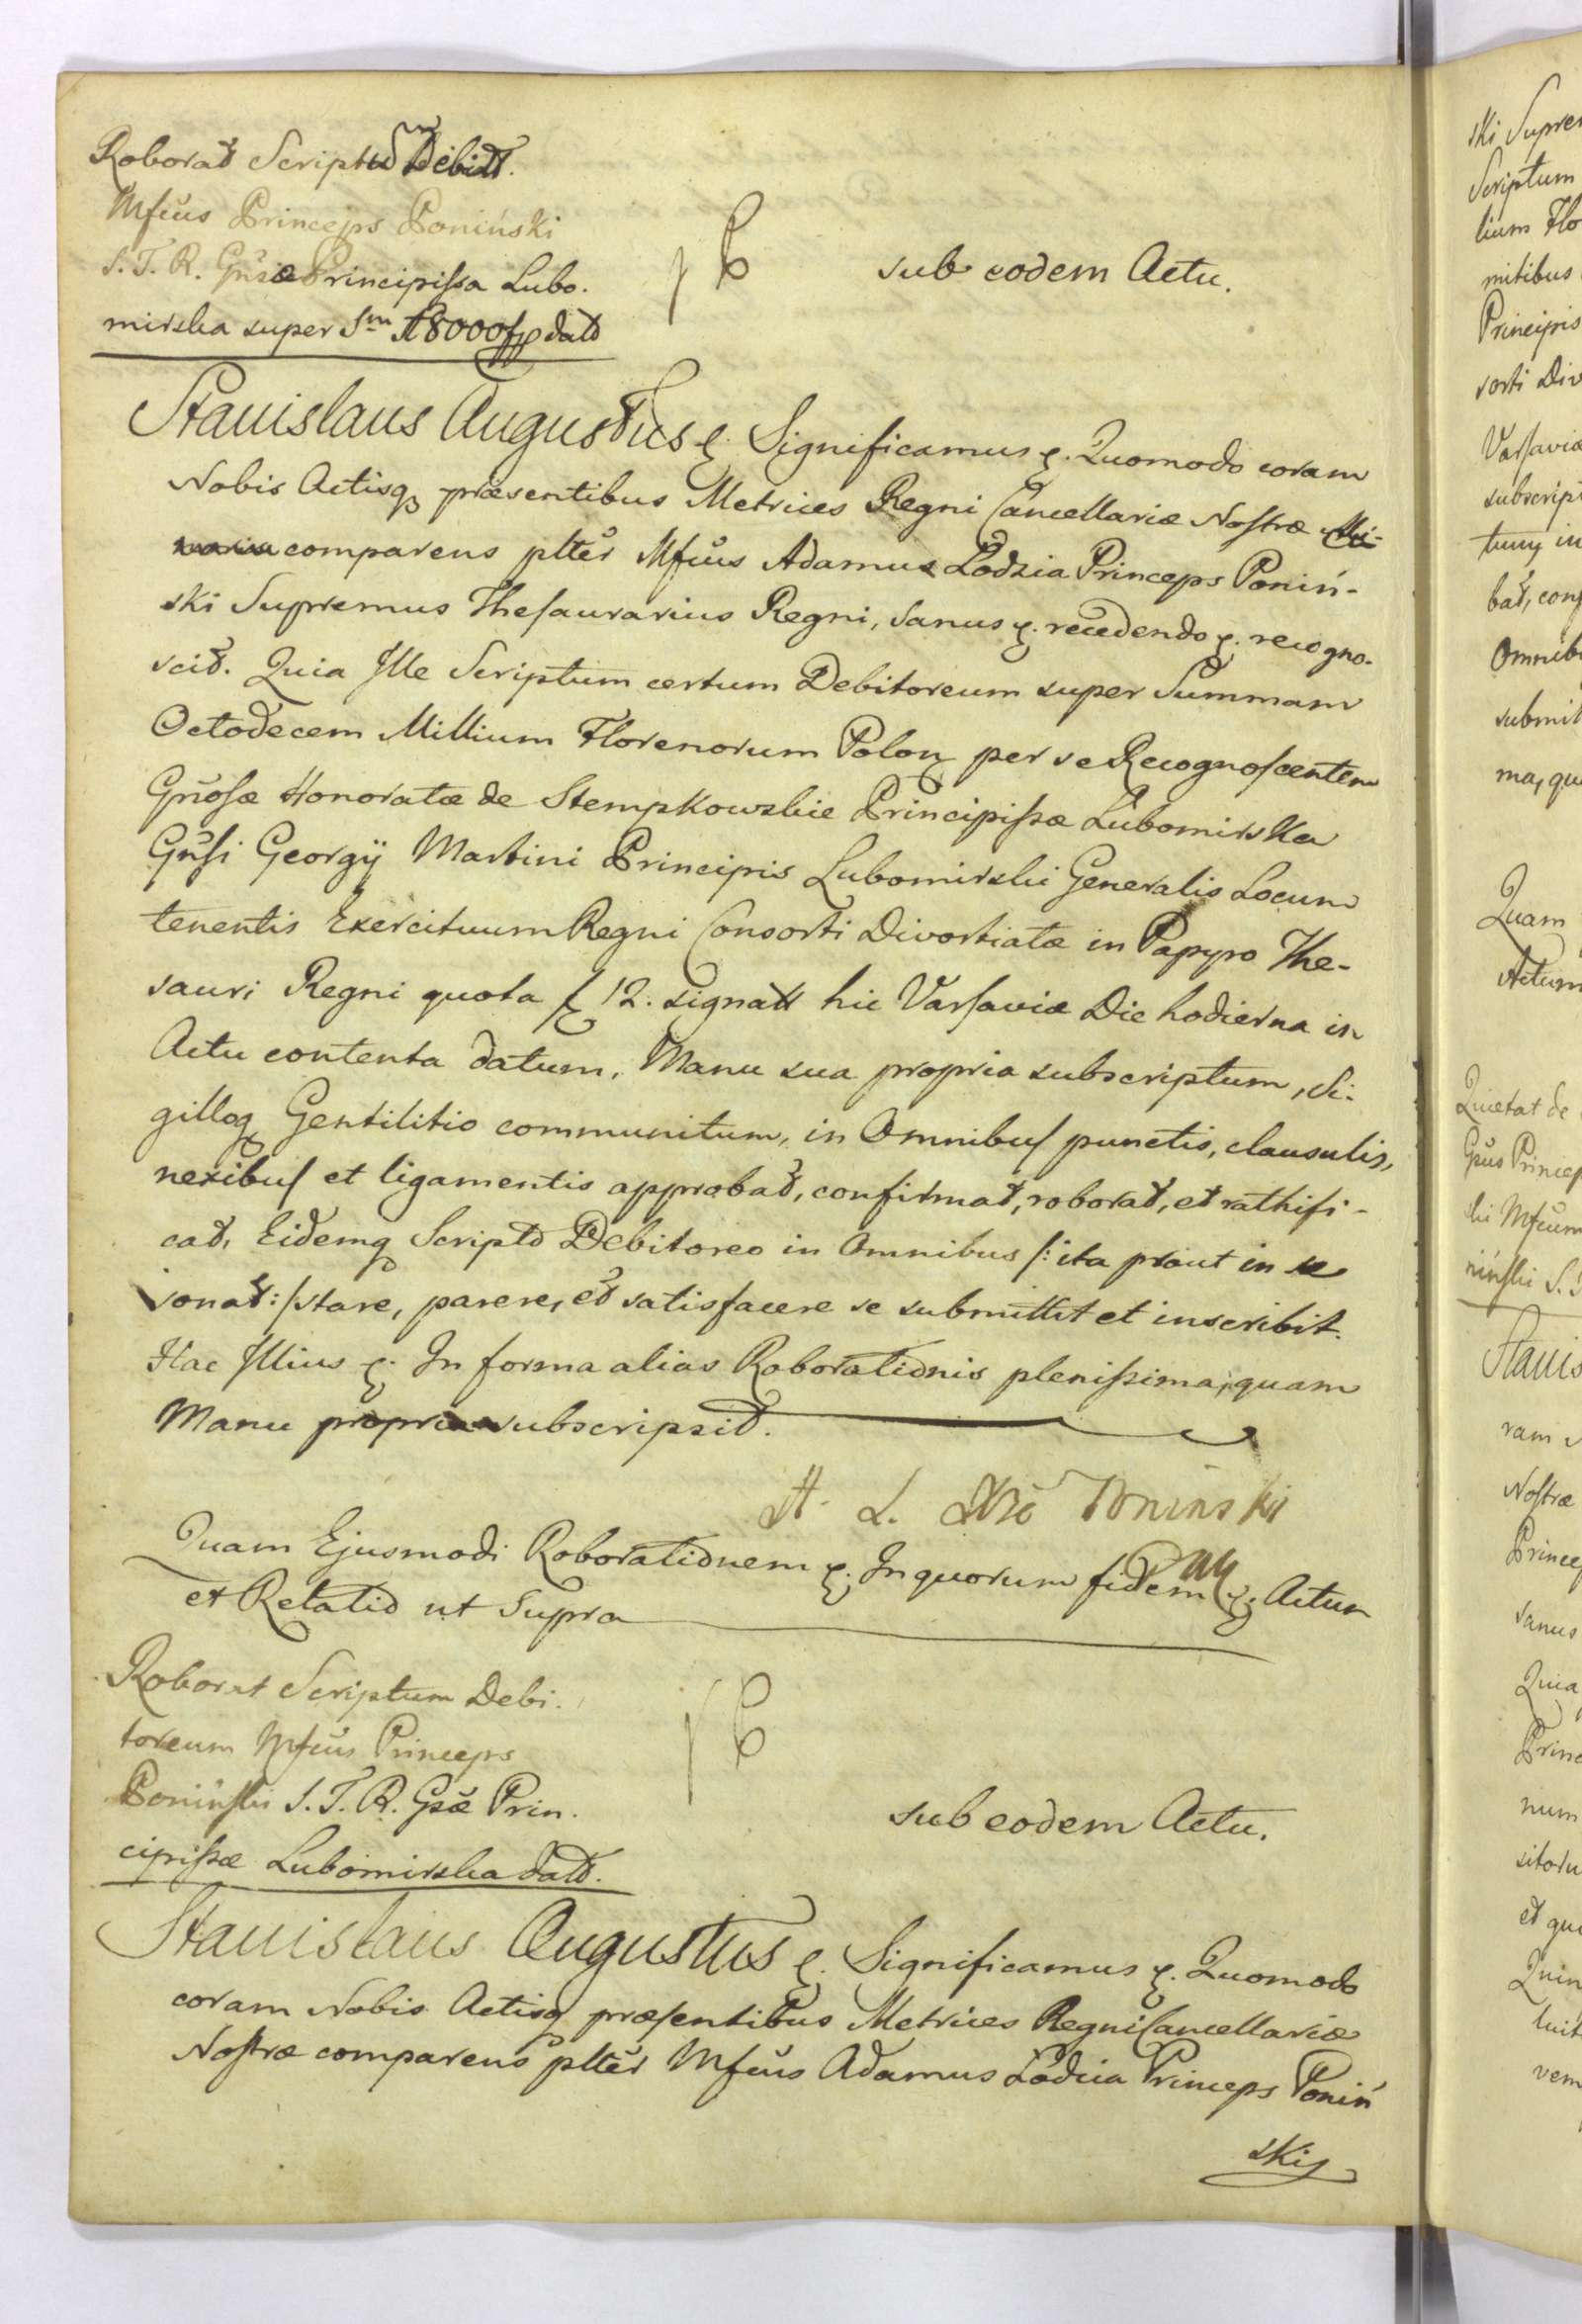 Roborat Scriptum Debitt.
Mfcus Princeps Poniński
S. T. R. Gnsæ Principissa Lubo.
mirska super Sm 18000 fp dato
sub eodem Actu.
Stanislaus Augustus &. Significamus &. Quomodo coram
Nobis Actisq præsentibus Metrices Regni Cancellariæ Nostræ
comparens plter Mfcus Adamus Lodzia Princeps Poniń-
ski Supremus Thesaurarius Regni, Sanus &. recedendo &. recogno-
scit. Quia Ille Scriptum certum Debitoreum super Summam
Octodecem Millium Florenorum Polon per se Recognoscentem
Gnosæ Honoratæ de Stempkowskie Principissæ Lubomirska
Gnsi Georgij Martini Principis Lubomirski Generalis Locum
tenentis Exercituum Regni Consorti Divortiatæ in Papyro The-
sauri Regni quota f 12. signatt hic Varsaviæ Die hodierna in
Actu contenta datum, Manu sua propria subscriptum, Si-
gilloq Gentilitio communitum, in Omnibus punctis, clausulis,
nexibus et ligamentis approbat, confirmat, roborat, et rathifi-
cat, Eidemq Scripto Debitoreo in Omnibus /: ita prout in se
sonat :/ stare, parere, et satisfacere se submittit et inscribit.
Hac Illius &. In forma alias Roborationis plenissima, quam
Manu propria subscripsit.
A. L. Poninski
Quam Ejusmodi Roborationem &. In quorum fidem &. Actum
et Relatio ut Supra
Roborat Scriptum Debi-
toreum Mfcus Princeps
Poniński S. T. R. Gsæ Prin-
cipissæ Lubomirska dato.
sub eodem Actu.
Stanislaus Augustus &. Significamus &. Quomodo
coram Nobis Actisq præsentibus Metrices Regni Cancellariæ
Nostræ comparens plter Mfcus Adamus Lodzia Princeps Poniń
ski